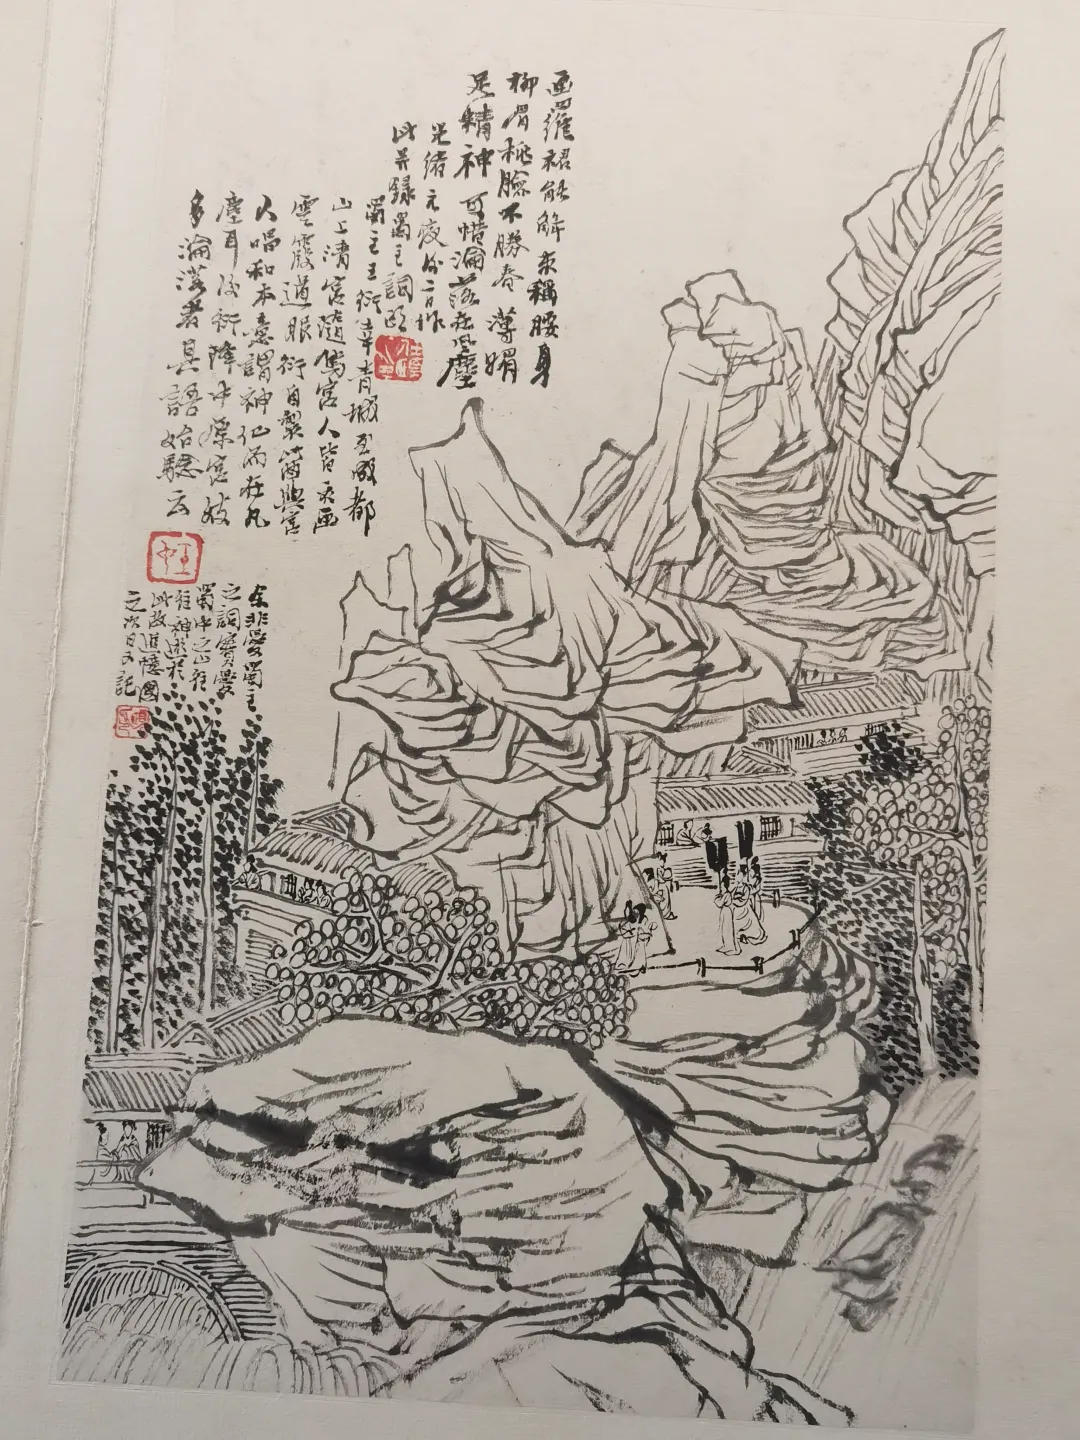 画羅裙能解束稱腰身
柳眉桃臉不勝春薄媚
足精神可惜淪落在風塵
光緒元夜後二日作
此并錄蜀主詞頤
蜀主王衍幸青城至成都
山上清宮隨駕宮人皆衣画
雲霞道服衍自製 與宮
人唱和本意謂神仙而在凡
塵耳後衍降中原宮妓
多淪落者其語始驗云
余非愛蜀主
之詞實愛
蜀中之山
神遊於
此故追憶圖
之次日又記